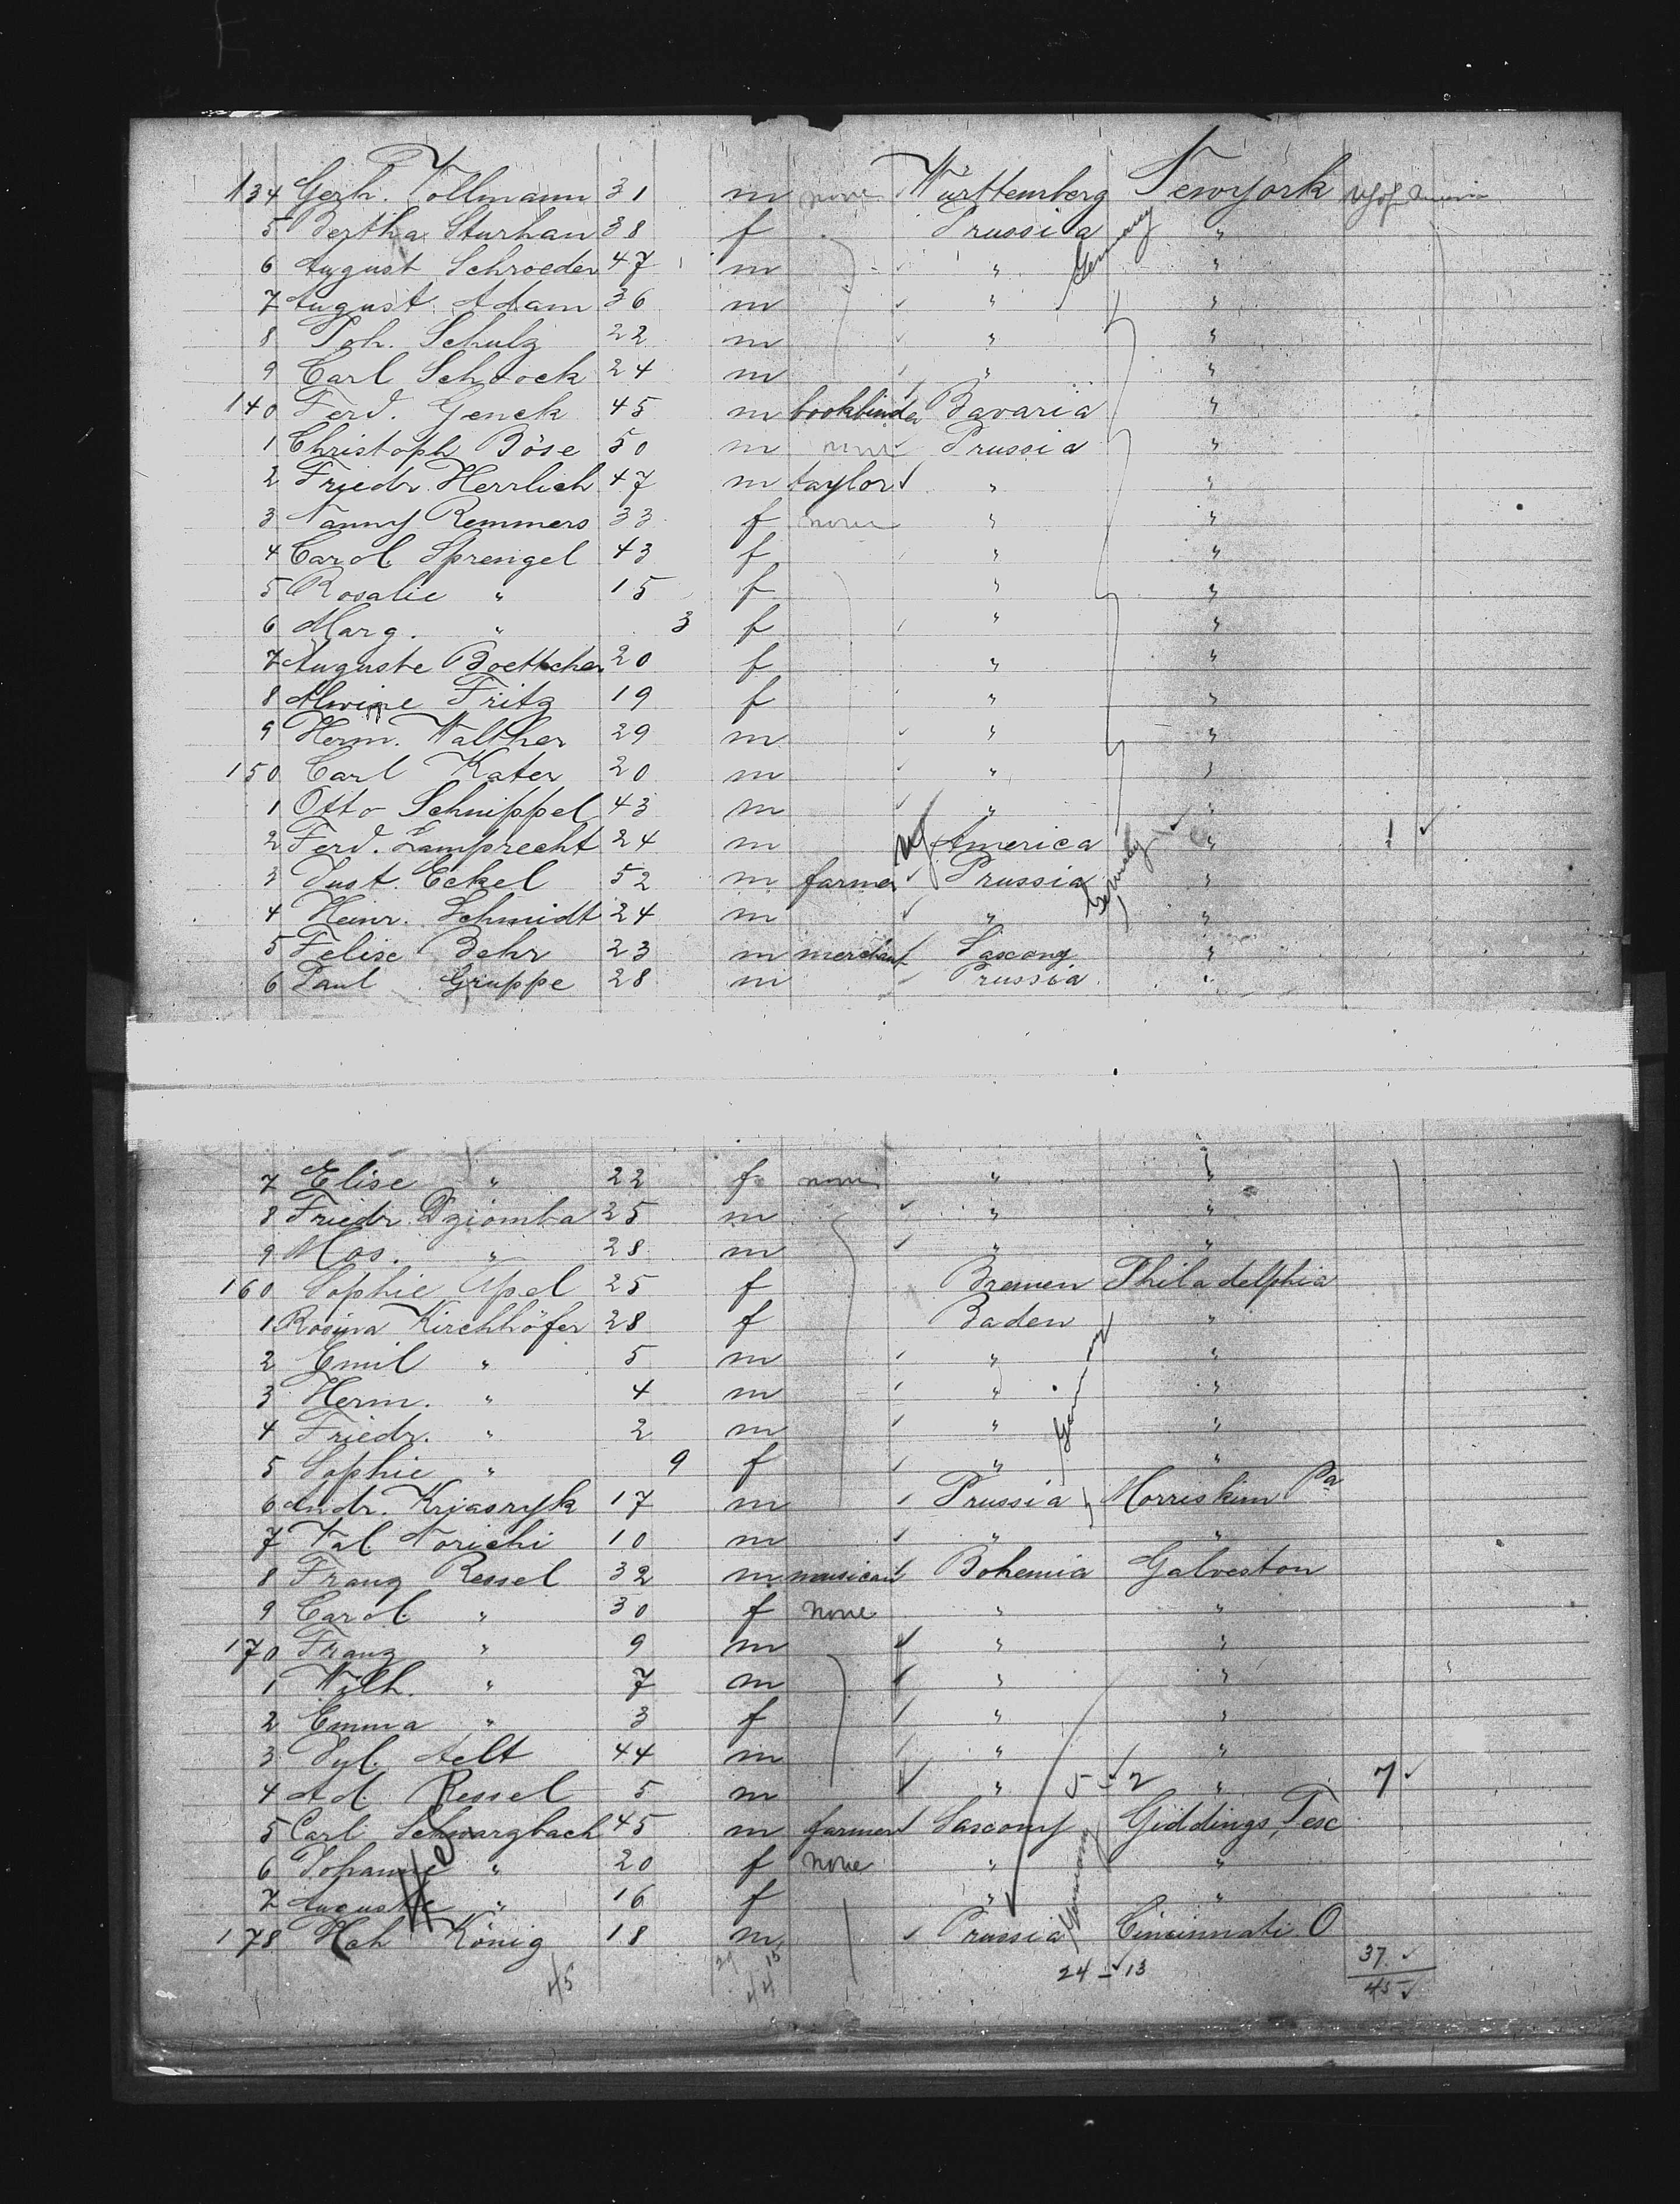 134 Gerh. Vollmann 31 m none Württemberg Newyork U S of America
5 Bertha Sturhan 38 f Prussia "
6 August Schroeder 47 m " Germany "
7 August Adam 36 m " "
8 Joh. Schulz 22 m " "
9 Carl Schrock 24 m " "
140 Ferd. Genck 45 m bookbinder Bavaria "
1 Christoph Böse 50 m none Prussia "
2 Friedr. Herrlich 47 m taylor " "
3 Nanny Remmers 33 f none " "
4 Carol. Sprengel 43 f " "
5 Rosalie " 15 f " "
6 Marg. " 3 f " "
7 Auguste Boettcher 20 f " "
8 Alwine Fritz 19 f " "
9 Herm. Walther 29 m " "
150 Carl Kater 20 m " "
1 Otto Schnippel 43 m " "
2 Ferd. Lamprecht 24 m America " 1 ✓
3 Just. Eckel 52 m farmer Prussia Germany "
4 Heinr. Schmidt 24 m " "
5 Felise Behr 23 m merchant Saxony "
6 Paul Gruppe 28 m Prussia "
7 Elise " 22 f none " "
8 Friedr. Dziomba 25 m " "
9 Mos. " 28 m " "
160 Sophie Apel 25 f Bremen Philadelphia
1 Rosina Kirchhöfer 28 f Baden "
2 Emil " 5 m " "
3 Herm. " 4 m " "
4 Friedr. " 2 m " Germany "
5 Sophie " 9 f " "
6 Andr. Kriasryk 17 m Prussia Morriskun Pa
7 Val. Norichi 10 m " "
8 Franz Ressel 32 m musican Bohemia Galveston
9 Carol. " 30 f none " "
170 Franz " 9 m " "
1 Wilh. " 7 m " "
2 Emma " 3 f " "
3 Aelt 44 m " "
4 Ad. Ressel 5 m " 5 - 2 " 7 ✓
5 Carl Schwarzbach 45 m farmer Saxony Giddings, Tex
6 Johanne " 20 f none " "
7 Auguste " 16 f " Germany "
178 Hch König 18 m Prussia Cincinnati O
45 29 15 44 24 - 13 37 ✓
45 ✓